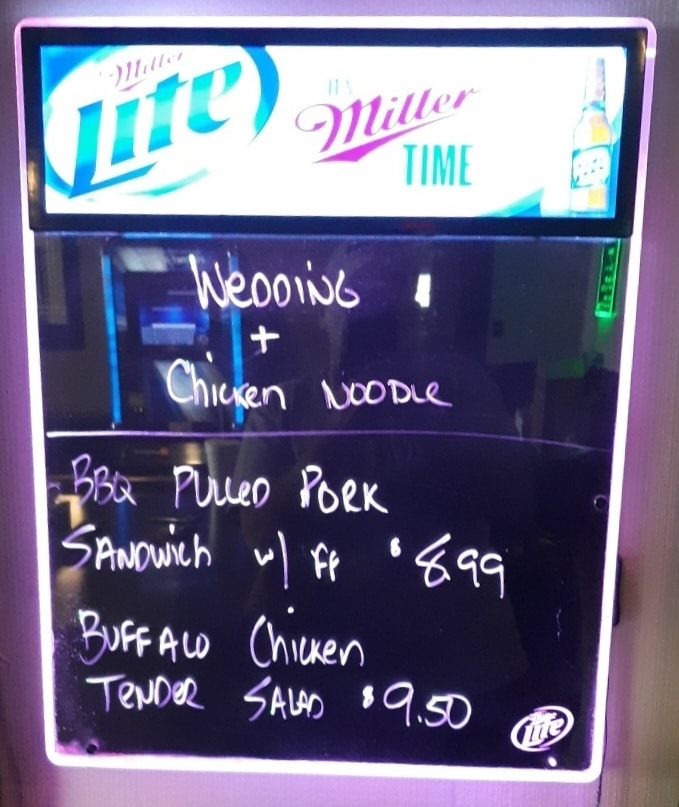 Miller
Lite
IT'S
Miller
TIME
WEDDING
+
Chicken NOODLE
BBQ PULLED PORK
SANDWICH w/ FF $8.99
BUFFALO Chicken
TENDER SALAD $9.50
Lite